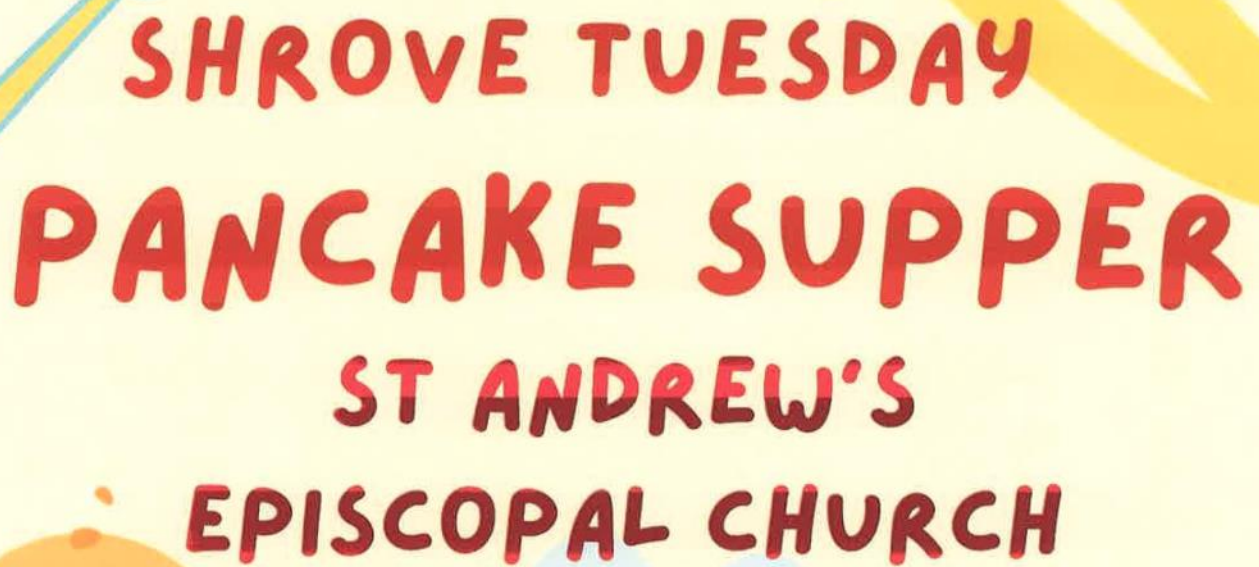 SHROVE TUESDAY
PANCAKE SUPPER
ST ANDREW'S
EPISCOPAL CHURCH